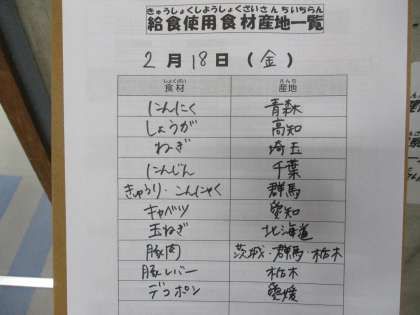 きゅうしょくしようしょくさいさんちいちらん
給食使用食材産地一覧
2月18日(金)
しょくざい さんち
食材 産地
にんにく 青森
しょうが 高知
ねぎ 埼玉
にんじん 千葉
きゅうり・こんにゃく 群馬
キャベツ 愛知
玉ねぎ 北海道
豚肉 茨城・群馬・栃木
豚レバー 栃木
デコポン 愛媛